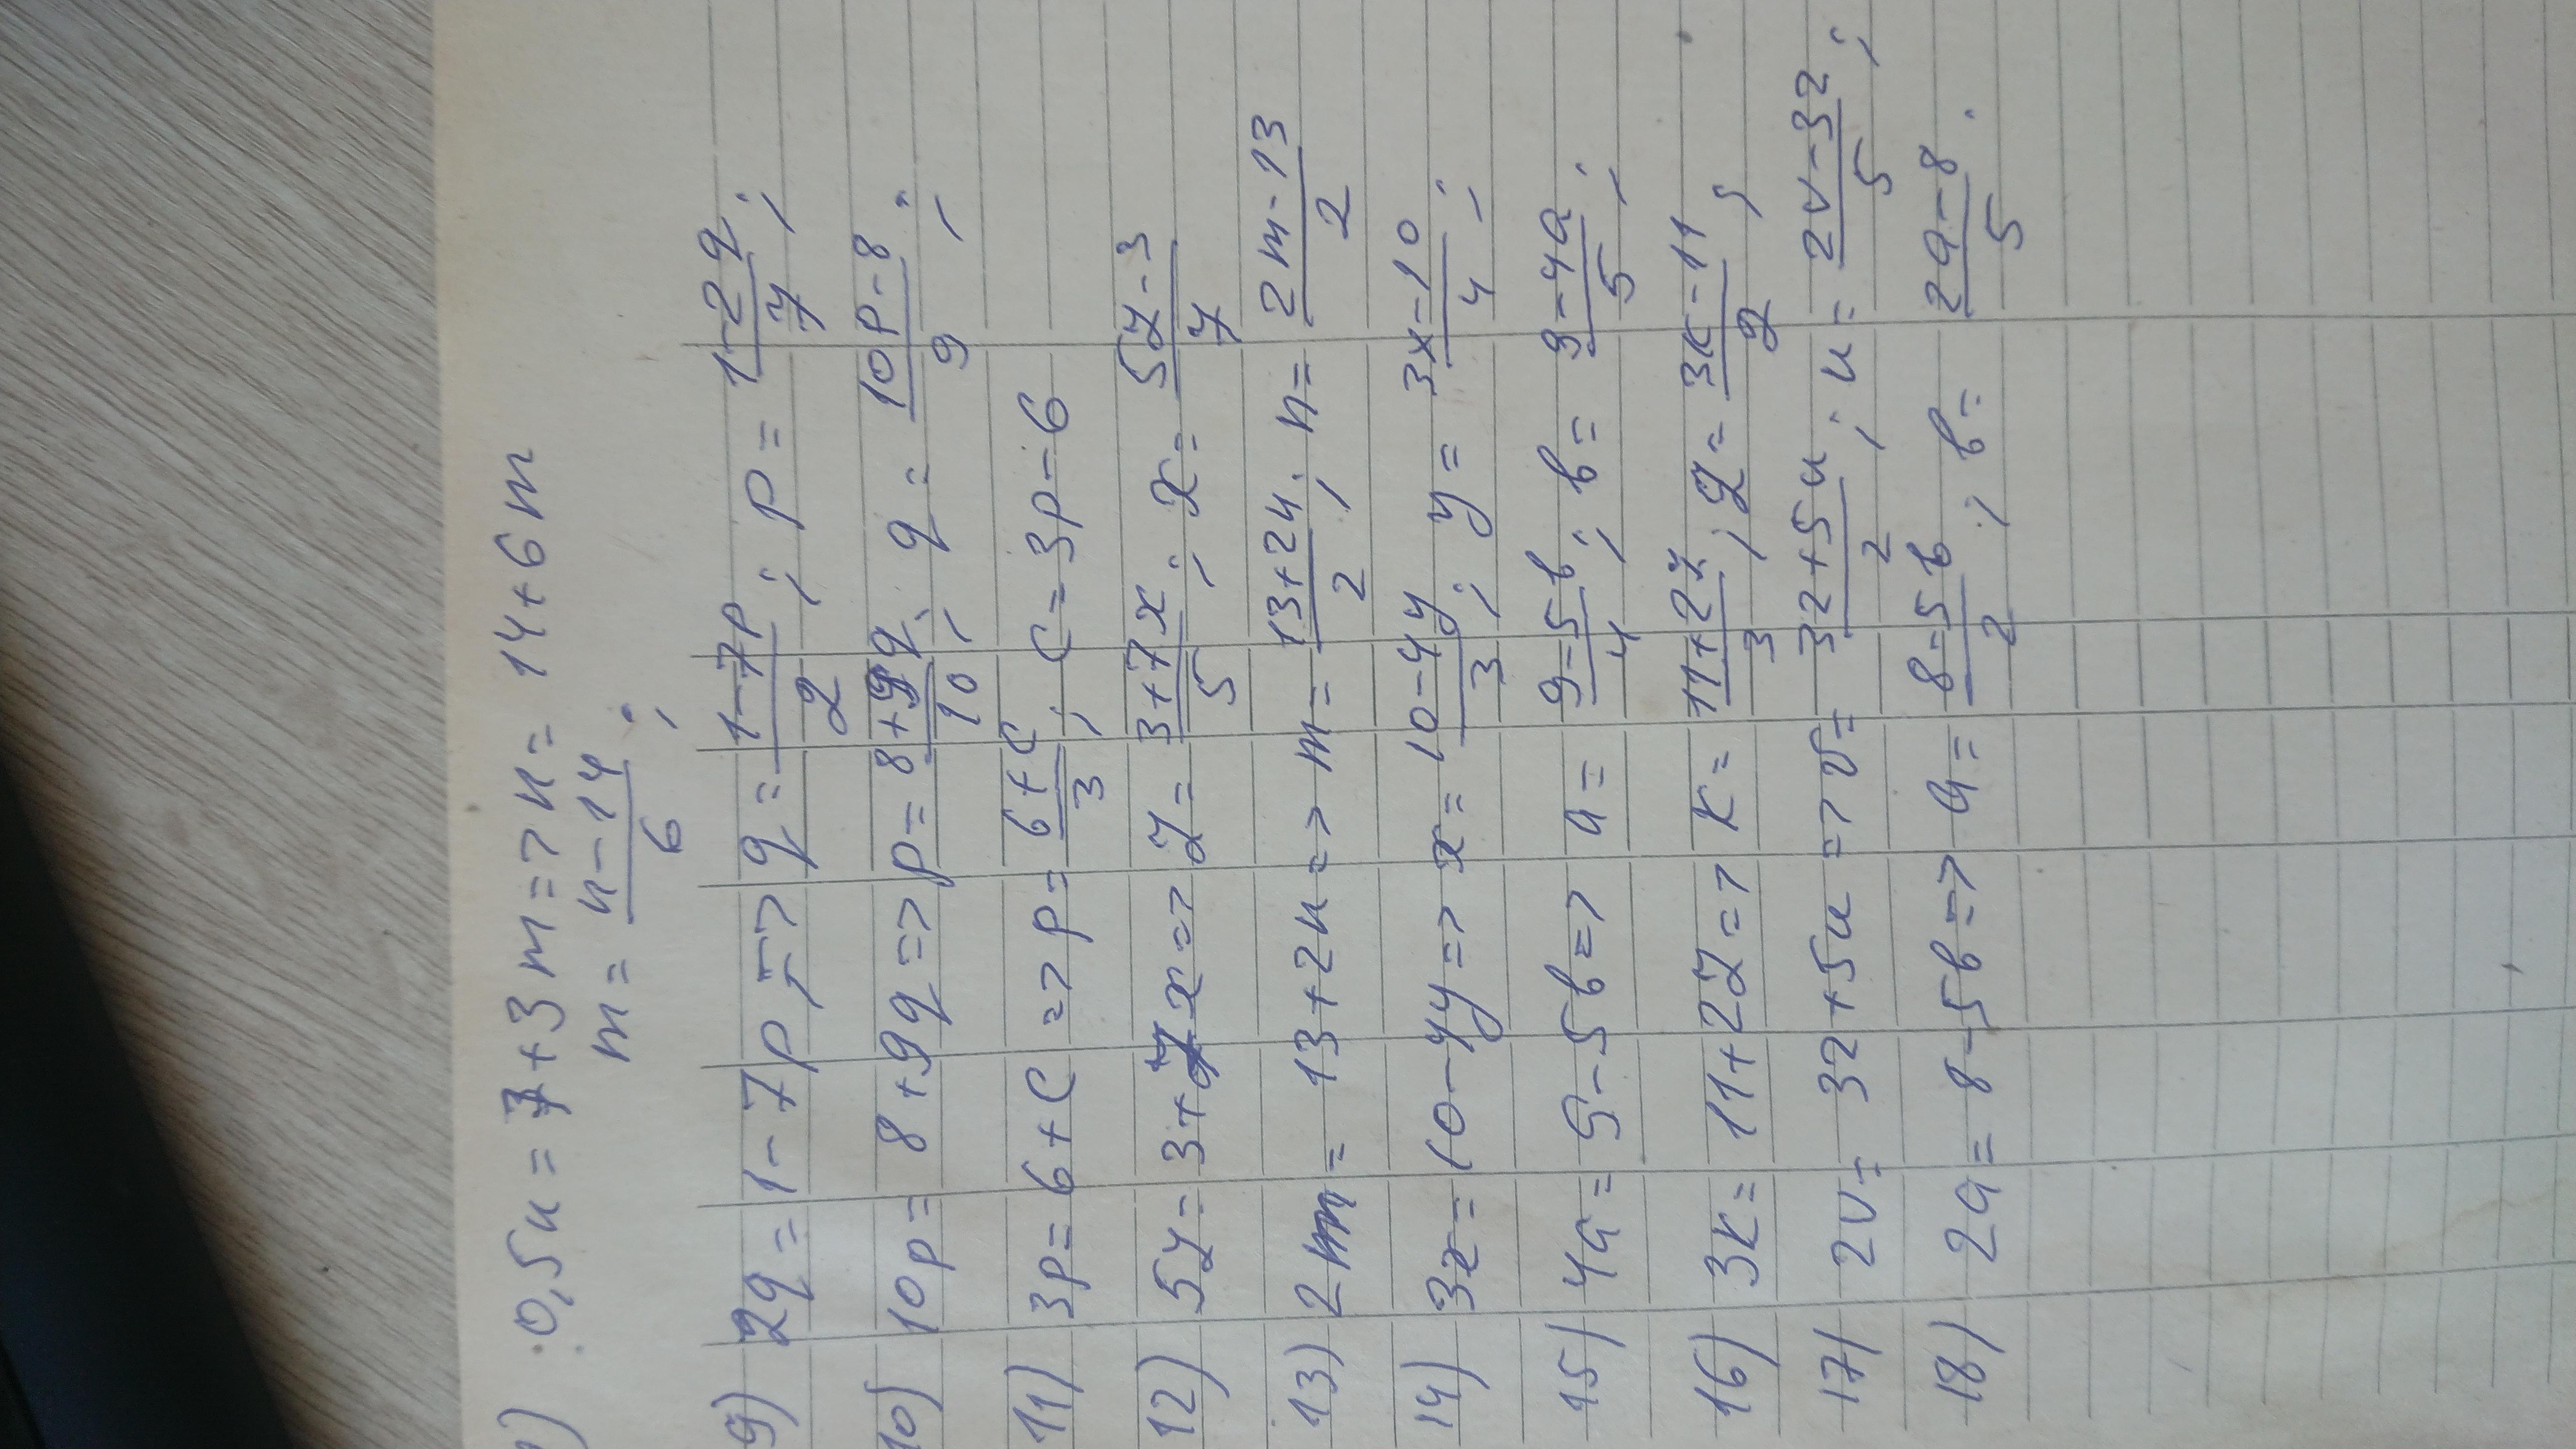 ) 0,5n = 7 + 3m => n = 14 + 6m
m = (n - 14)/6 ;
9) 2q = 1 - 7p => q = (1 - 7p)/2 ; p = (1 - 2q)/7 ;
10) 10p = 8 + 9q => p = (8 + 9q)/10 ; q = (10p - 8)/9 ;
11) 3p = 6 + c => p = (6 + c)/3 ; c = 3p - 6
12) 5y = 3 + 7x => y = (3 + 7x)/5 ; x = (5y - 3)/7
13) 2m = 13 + 2n => m = (13 + 2n)/2 ; n = (2m - 13)/2
14) 3x = 10 - 4y => x = (10 - 4y)/3 ; y = (3x - 10)/4 ;
15) 4a = 9 - 5b => a = (9 - 5b)/4 ; b = (9 - 4a)/5 ;
16) 3k = 11 + 2z => k = (11 + 2z)/3 ; z = (3k - 11)/2 ;
17) 2v = 32 + 5u => v = (32 + 5u)/2 ; u = (2v - 32)/5 ;
18) 2a = 8 - 5b => a = (8 - 5b)/2 ; b = (2a - 8)/5 .